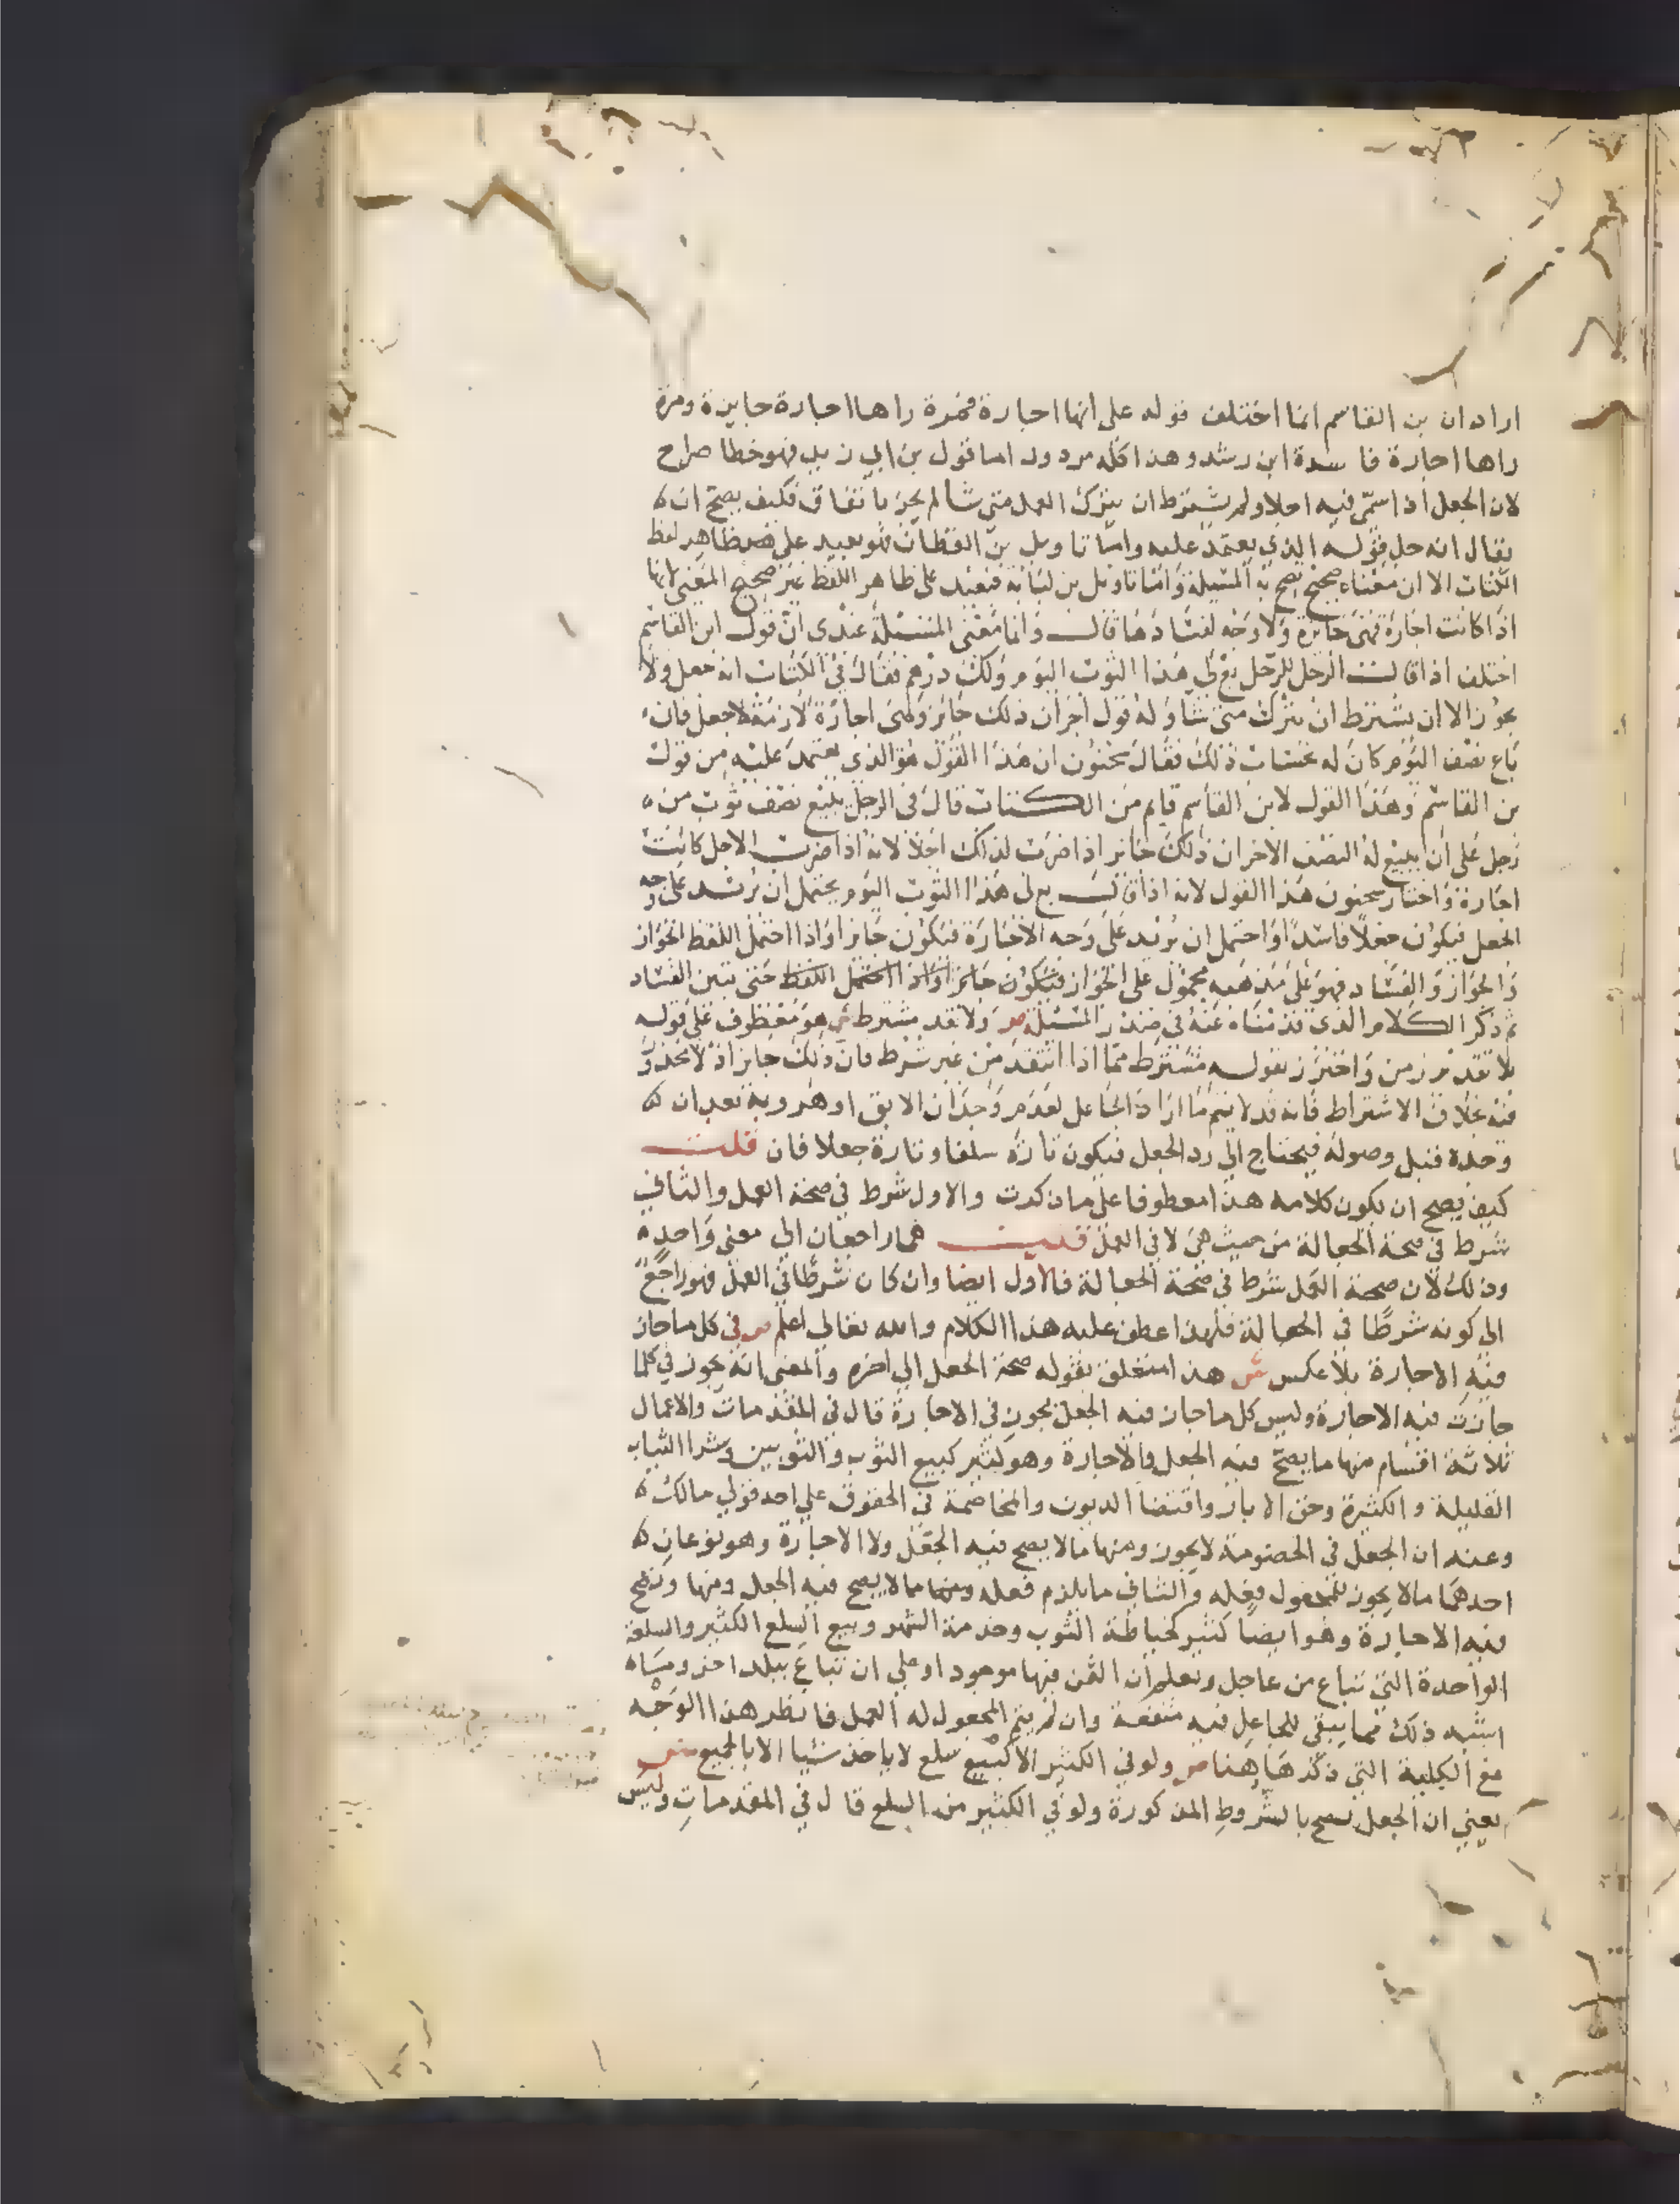 اراد ان بن القاسم انما اختلف قوله على انها اجارة فمرة راها اجارة جايزة ومرة
راها اجارة فا سدة ابن رشد وهذا كله مردود اما قول بن ابي زيد فهو خطا صراح
لان الجعل اذا سمى فيه اجلا ولم يشترط ان يترك العمل متى شا لم يجز باتفاق فكيف يصح ان
يقال انه جل قوله الذي يعتمد عليه واما تاويل بن القطان فهو بعيد على ظاهر لفظ
الكتاب الا ان معناه صحيح تصح به المسيلة واما تاويل بن لبابة فبعيد على ظاهر اللفظ غير صحيح المعنى لانها
اذا كانت اجارة فهى جائزة ولا وجه لفسادها قال وانما معنى المسئلة عندى ان قول ابن القاسم
اختلف اذا قال الرجل للرجل بع لى هذا الثوب اليوم ولك درهم فقال في الكتاب انه جعل ولا
يجوز الا ان يشترط ان يترك متى شا وله قول اخر ان ذلك جائز وهى اجارة لازمة لا جعل فان
باع نصف اليوم كان له بحساب ذلك فقال سحنون ان هذا القول هو الذى يعتمد عليه من قول
بن القاسم وهذا القول لابن القاسم قايم من الكتاب قال فى الرجل يبيع نصف ثوب من
رجل على ان يبيع له النصف الاخر ان ذلك جائز اذا ضرب لذلك اجلا لانه اذا ضرب الاجل كانت
اجارة واختار سحنون هذا القول لانه اذا قال بع لى هذا الثوب اليوم يحتمل ان يريد على وجه
الجعل فيكون جعلا فاسدا واحتمل ان يريد على وجه الاجارة فيكون جائزا واذا احتمل اللفظ الجواز
والجواز والفساد فهو على مذهبه محمول على الجواز فيكون جائزا واذا احتمل اللفظ حتى يتبين الفساد
ثم ذكر الكلام الذى قدمناه عنه فى صدر المسئلة ص ولا نقد مشترط ش هو معطوف على قوله
بلا تقدير زمن واحترز بقوله مشترط مما اذا انتقد من غير شرط فان ذلك جايز اذ لا محذور
فيه بخلاف الاشتراط فانه قد لا يتم ما اراد الجاعل لعدم وجدان الابق او هروبه بعد ان
وجده قبل وصوله فيحتاج الى رد الجعل فيكون تارة سلفا وتارة جعلا فان قلت
كيف يصح ان يكون كلامه هذا معطوفا على ما ذكرت والاول شرط في صحة العمل والثاني
شرط في صحة الجعالة من حيث هى لا في العمل قلت هما راجعان الي معنى واحد
وذلك لان صحة العمل شرط في صحة الجعالة فالاول ايضا وان كان شرطا في العمل فهو راجع
الي كونه شرطا في الجعالة فلهذا عطف عليه هذا الكلام والله تعالي اعلم ص في كل ما جاز
فيه الاجارة بلا عكس ش هذا متعلق بقوله صحة الجعل الي اخره والمعنى انه يجوز في كلما
جازت فيه الاجارة وليس كل ما جاز فيه الجعل يجوز في الاجارة قال في المقدمات والاعمال
ثلاثة اقسام منها ما يصح فيه الجعل والاجارة وهو كثير كبيع الثوب والثوبين وشرا الثياب
القليلة والكثيرة وحفر الابار واقتضا الديون والمخاصمة في الحقوق علي احد قولي مالك
وعنه ان الجعل في الخصومة لا يجوز ومنها ما لا يصح فيه الجعل ولا الاجارة وهو نوعان
احدهما ما لا يجوز للمجعول فعله والثاني ما يلزم فعله ومنها ما لا يصح فيه الجعل ومنها وتصح
فيه الاجارة وهو ايضا كثير كخياطة الثوب وخدمة الشهر وبيع السلع الكثير والسلعة
الواحدة التي تباع من عاجل ويعلم ان الثمن فيها موجود او علي ان تباع ببلد اخر وما
اشبه ذلك مما يبقى للجاعل فيه منفعة وان لم يتم المجعول له العمل فانظر هذا الوجه
مع الكلية التي ذكرها هنا ص ولو في الكثير الا كبيع سلع لا ياخذ شيا الا بالجميع ش
يعني ان الجعل يصح بالشروط المذكورة ولو في الكثير من السلع قال في المقدمات وليس